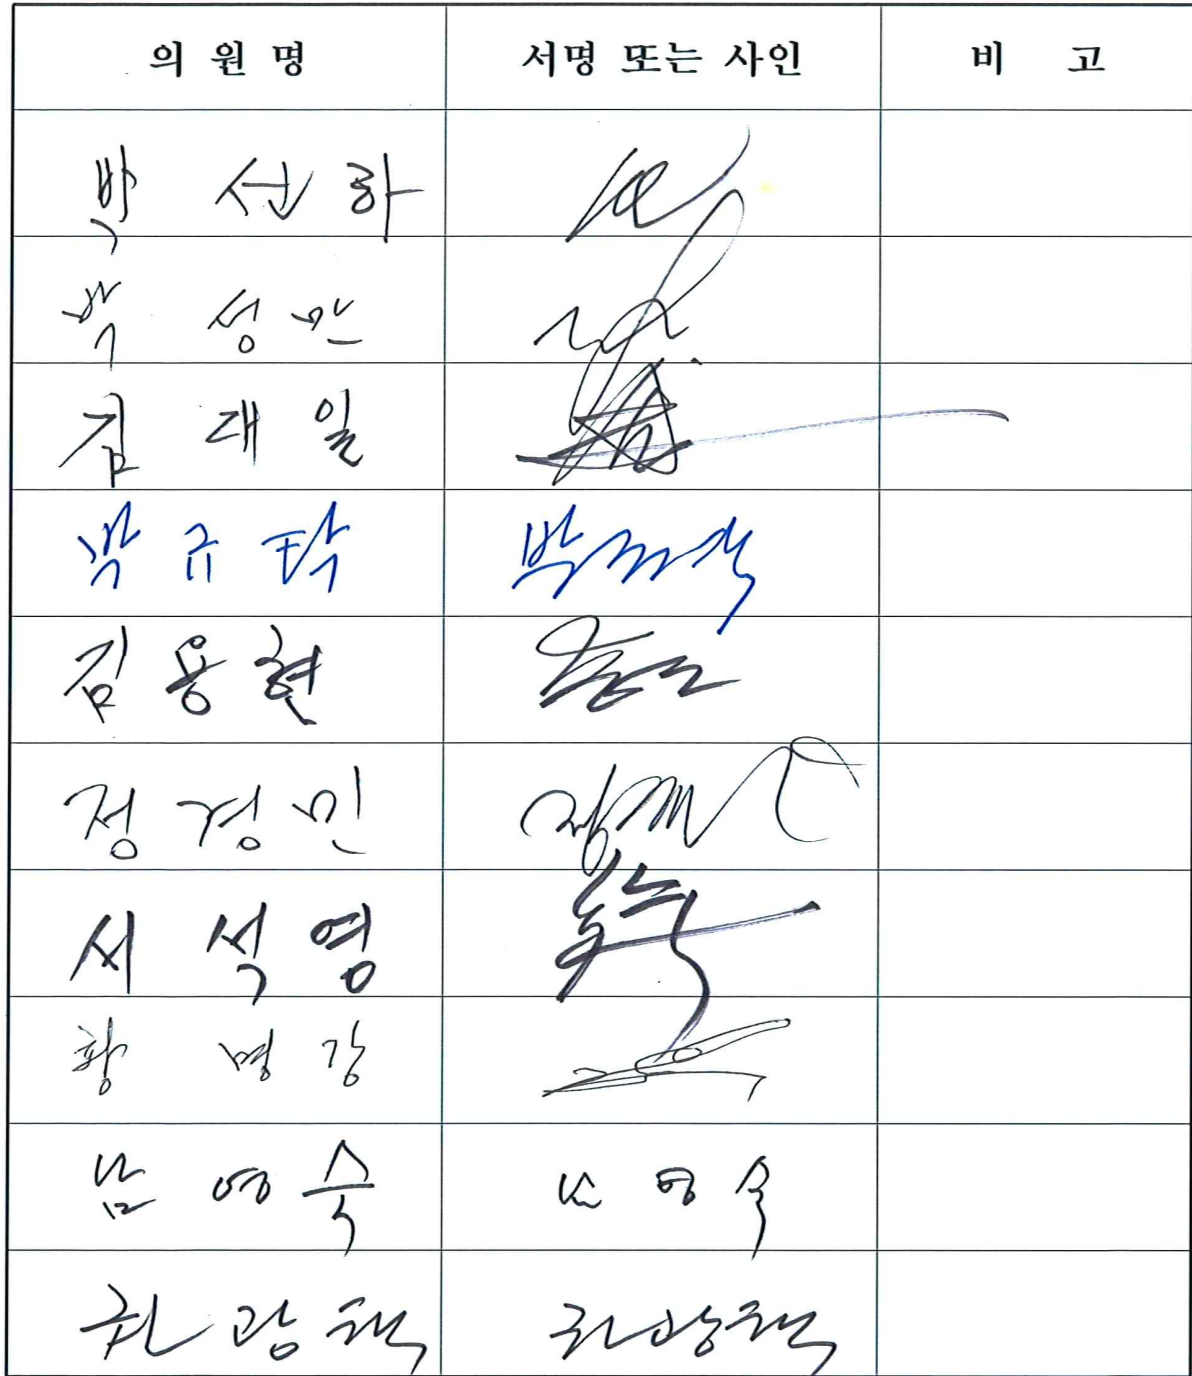 의 원 명 서명 또는 사인 비 고
박 선 하
박 성 만
김 대 일
박 규 탁 박규탁
김 용 현
정 경 민
서 석 영
황 명 강
남 영 숙 남 영 숙
권 광 택 권광택